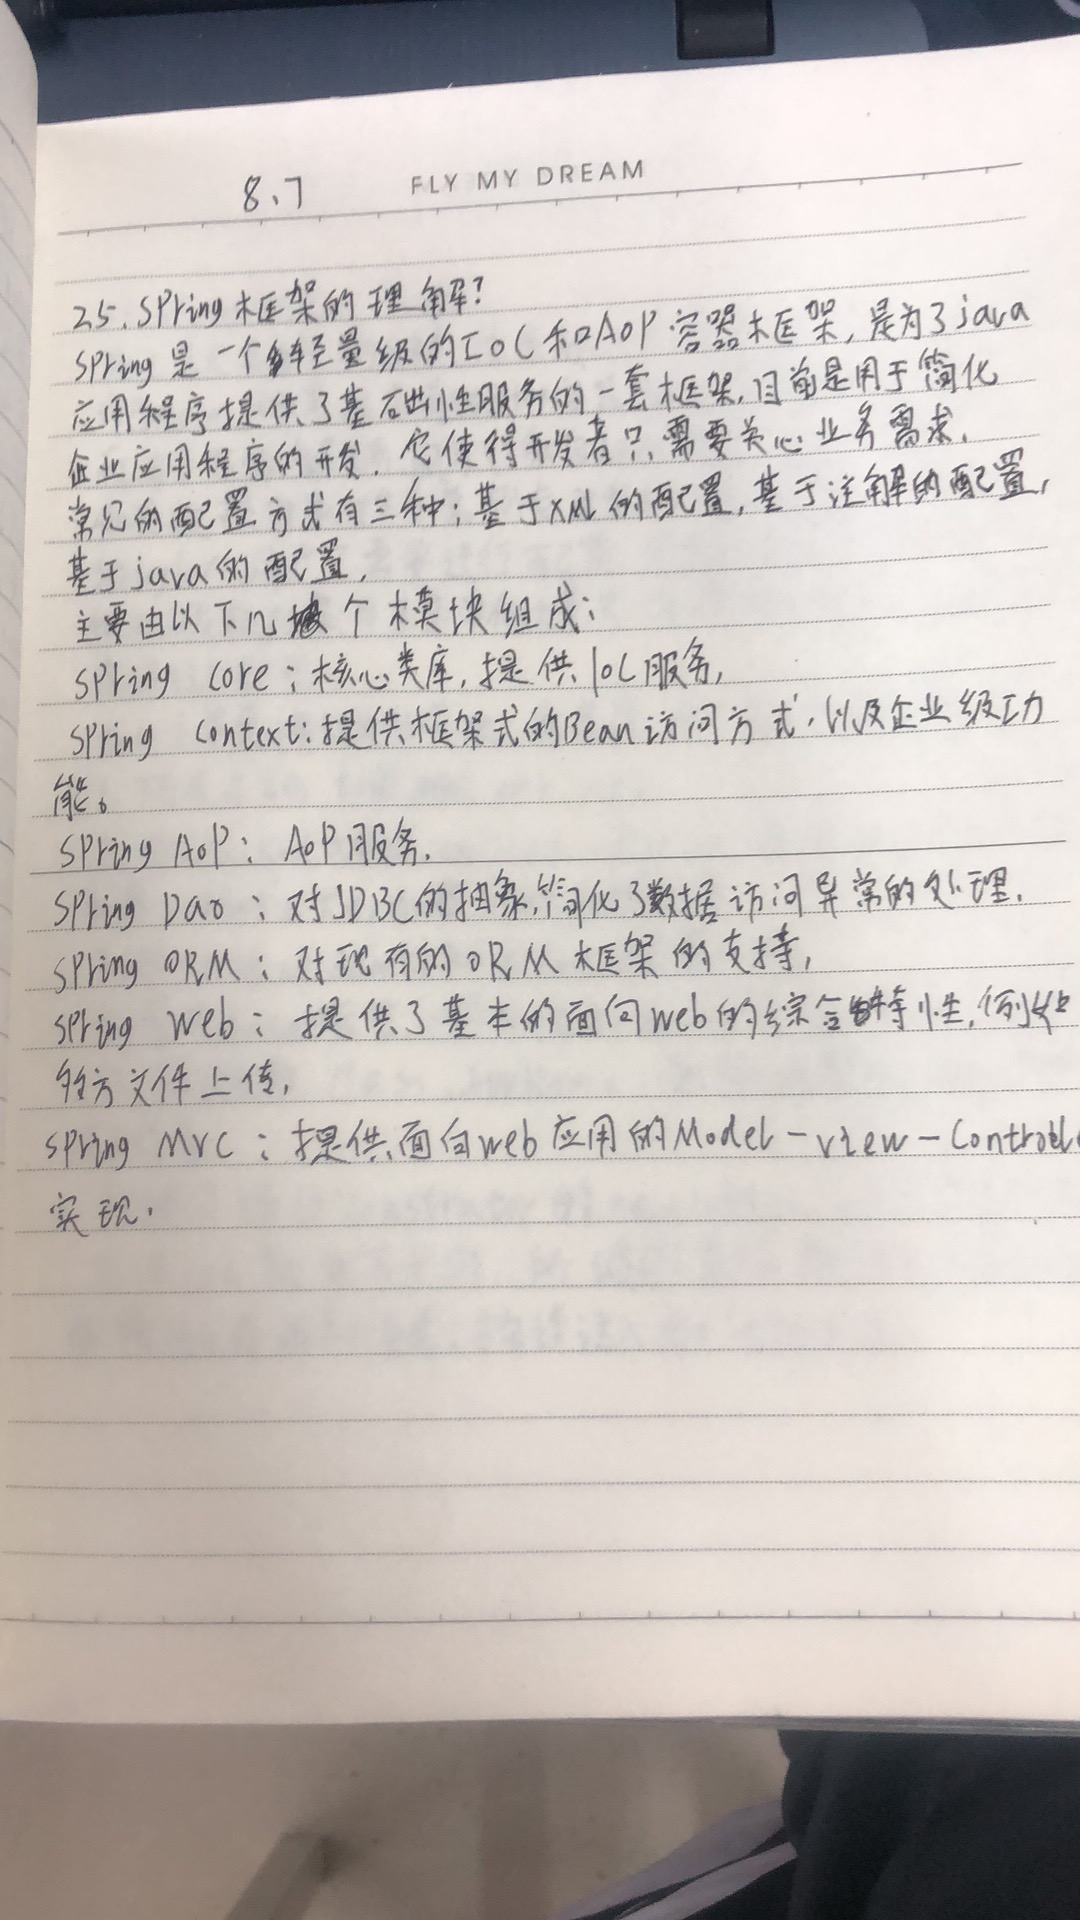 8.7 FLY MY DREAM
25.Spring框架的理解?
Spring是一个轻量级的IOC和AOP容器框架,是为了java
应用程序提供了基础性服务的一套框架,目前是用于简化
企业应用程序的开发.它使得开发者只需要关心业务需求.
常见的配置方式有三种:基于XML的配置,基于注解的配置,
基于java的配置,
主要由以下几个模块组成:
Spring Core:核心类库,提供IOC服务,
Spring Context:提供框架式的Bean访问方式,以及企业级功
能。
Spring AOP:AOP服务.
Spring Dao:对JDBC的抽象,简化了数据访问异常的处理.
Spring ORM:对现有的ORM框架的支持,
Spring Web:提供了基本的面向web的综合特性,例如
多方文件上传,
Spring MVC:提供面向web应用的Model-view-Controlle
实现.